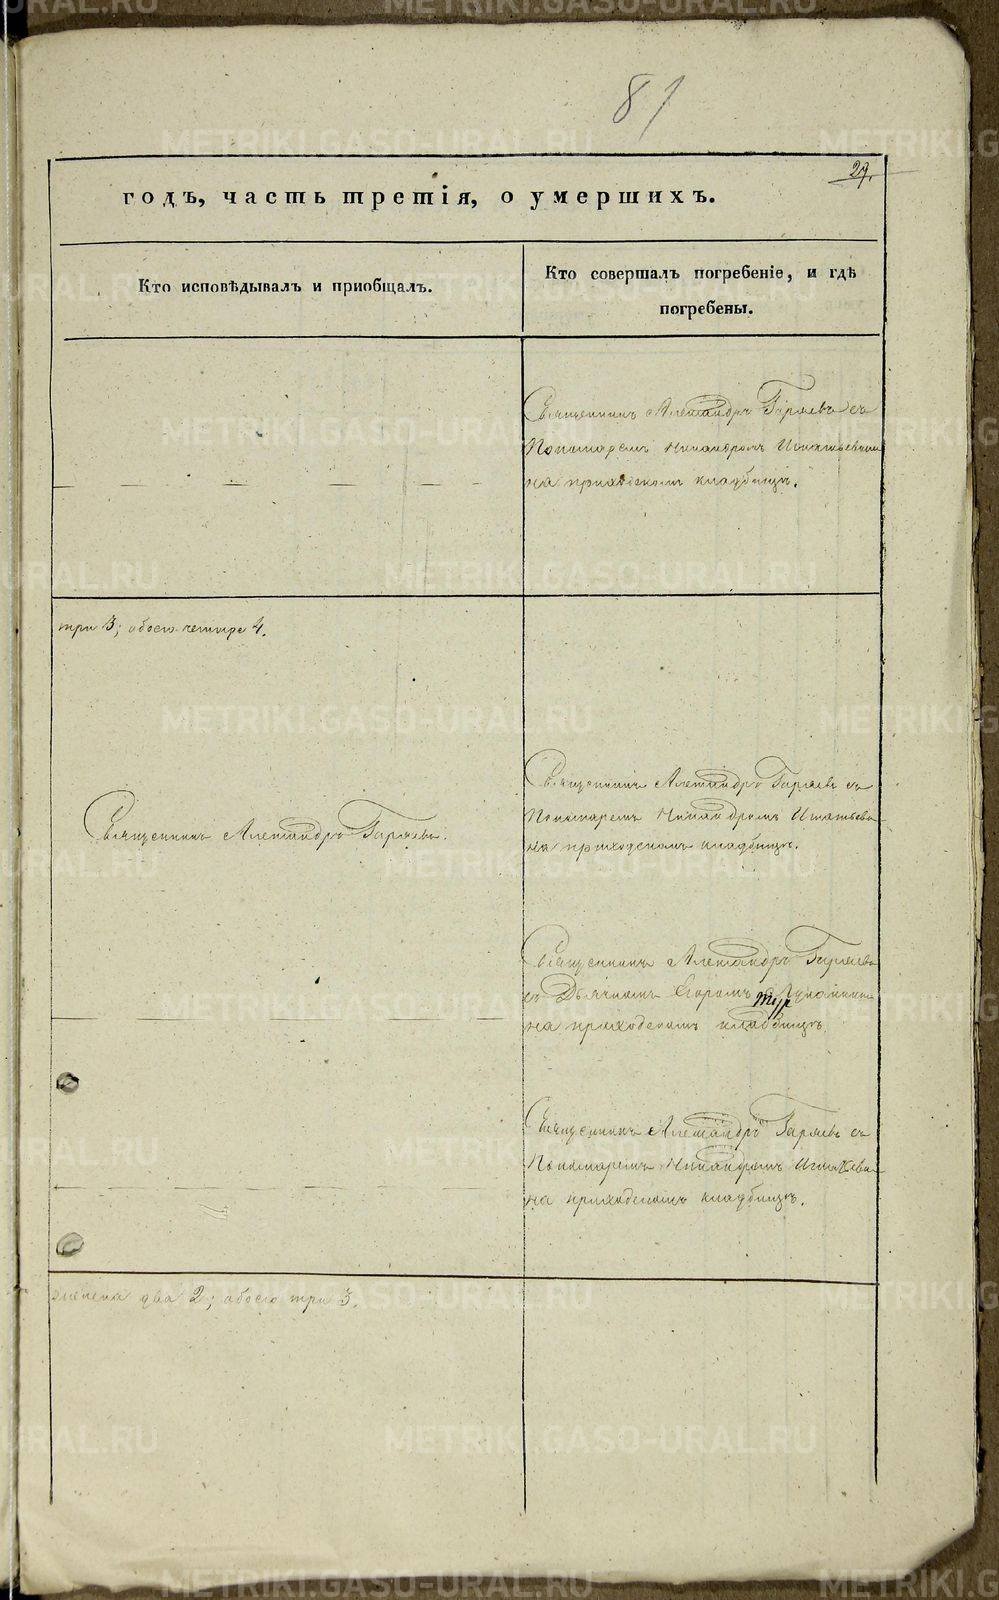 81
29.
годъ, часть третія, о умершихъ.
Кто исповѣдывалъ и приобщалъ.
Кто совершалъ погребеніе, и гдѣ
погребены.
Священникъ Александръ Гаряевъ съ
Пономаремъ Никандромъ Игнатьевымъ
на приходскомъ кладбищѣ.
три 3; обоего четыре 4.
Священникъ Александръ Гаряевъ съ
Пономаремъ Никандромъ Игнатьевы
на приходскомъ кладбищѣ.
Священникъ Александръ Гаряевъ.
Священникъ Александръ Гаряевъ
съ Дьячкомъ Егоромъ
на приходскомъ кладбищѣ
Священникъ Александръ Гаряевъ съ
Пономаремъ Никандромъ Игнатьевы
на приходскомъ кладбищѣ.
два 2; обоего три 3.
METRIKI.GASO-URAL.RU